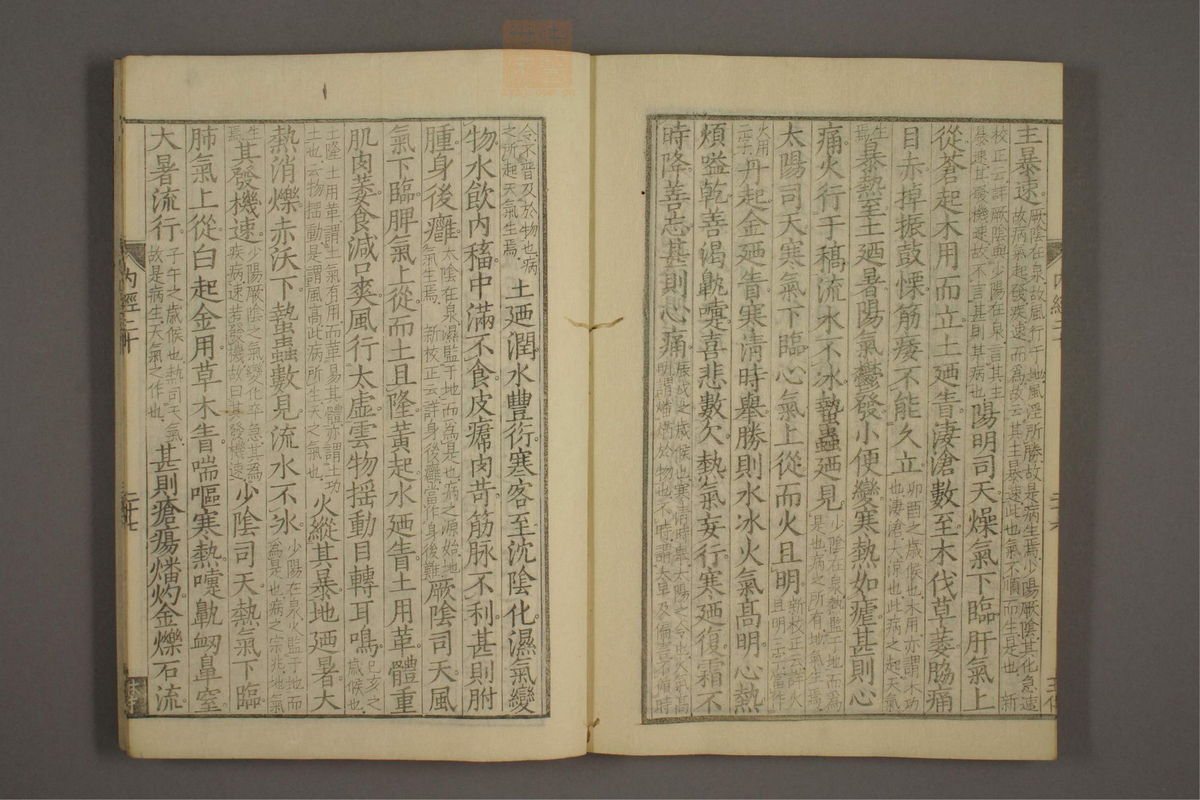 主暴速厥陰在泉故風行于地風淫所勝故是病生焉少陽厥陰其化急速故病氣起發疾速而為故云其主暴速此也氣不順而生是也 新
校正云詳厥陰與少陽在泉言其主暴速其發機速故不言甚則某病也 陽明司天燥氣下臨肝氣上
從蒼起木用而立土廼眚淒滄數至木伐草萎脇痛
目赤掉振鼓慄筋痿不能久立卯酉之歲候也木用亦謂木功也淒滄大涼也此病之起天氣
生焉 暴熱至土廼暑陽氣鬱發小便變寒熱如瘧甚則心
痛火行于稿流水不冰蟄蟲廼見少陰在泉熱監于地而為是也病之所有地氣生焉
太陽司天寒氣下臨心氣上從而火且明新校正云詳火且明三字當作
火用二字 丹起金廼眚寒清時舉勝則水冰火氣高明心熱
煩嗌乾善渴鼽嚏喜悲數欠熱氣妄行寒廼復霜不
時降善忘甚則心痛辰戌之歲候也寒清時舉太陽之令也火氣高明謂燔焫於物也不時謂太早及偏害不循時
令不普及於物也病之所起天氣生焉 土廼潤水豐衍寒客至沈陰化濕氣變
物水飲内稸中滿不食皮㾯肉苛筋脉不利甚則胕
腫身後癰太陰在泉濕監于地而為是也病之源始地氣生焉 新校正云詳身後癰當作身後難 厥陰司天風
氣下臨脾氣上從而土且隆黃起水廼眚土用革體重
肌肉萎食減口爽風行太虛雲物搖動目轉耳鳴巳亥之歲候也
土隆土用革謂土氣有用而革易其體亦謂土功土也云物搖動是謂風高此病所生天之氣也 火縱其暴地廼暑大
熱消爍赤沃下蟄蟲數見流水不冰少陽在泉火監于地而為是也病之宗兆地氣
生焉 其發機速少陽厥陰之氣變化卒急其為疾病速若發機故曰其發機速 少陰司天熱氣下臨
肺氣上從白起金用草木眚喘嘔寒熱嚏鼽衂鼻窒
大暑流行子午之歲候也熱司天氣故是病生天氣之作也 甚則瘡瘍燔灼金爍石流
内經二十
二十七